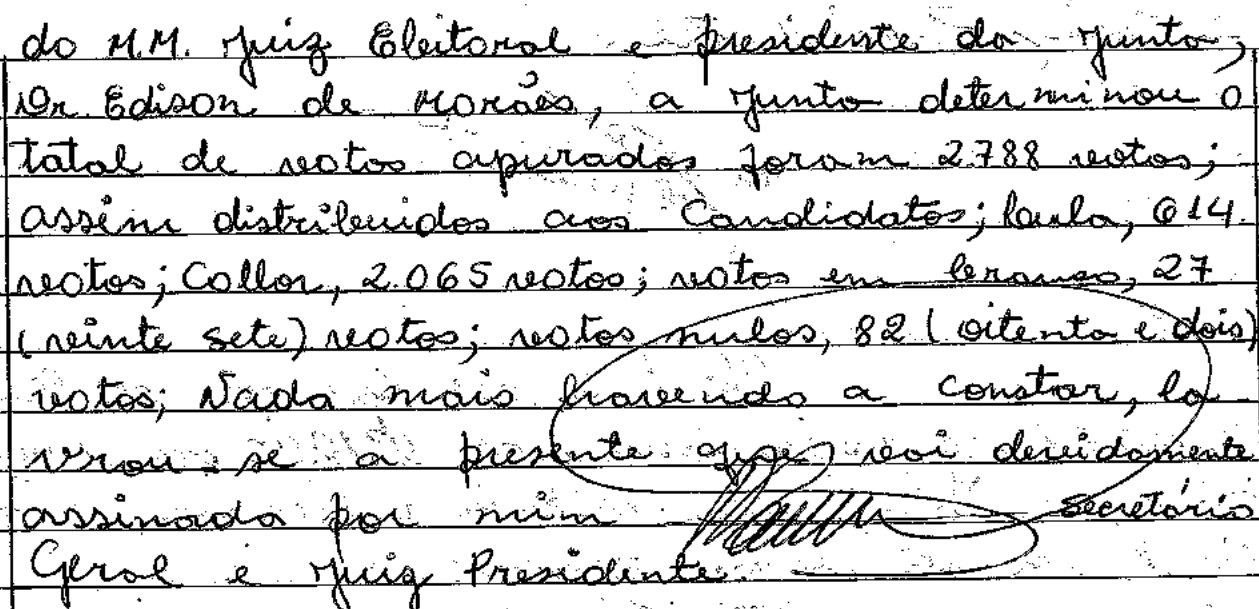 do M.M. Juiz Eleitoral e presidente da Junta,
Dr. Edison de Morães, a Junta determinou o
tatal de votos apurados foram 2788 votos;
assim distribuidos aos Candidatos; Lula, 614
votos; Collor, 2.065 votos; votos em branco, 27
(vinte sete) votos; votos nulos, 82 (oitenta e dois)
votos; Nada mais havendo a constar, la
vrou-se a presente que vai devidamente
assinada por mim secretário
Geral e Juiz Presidente.